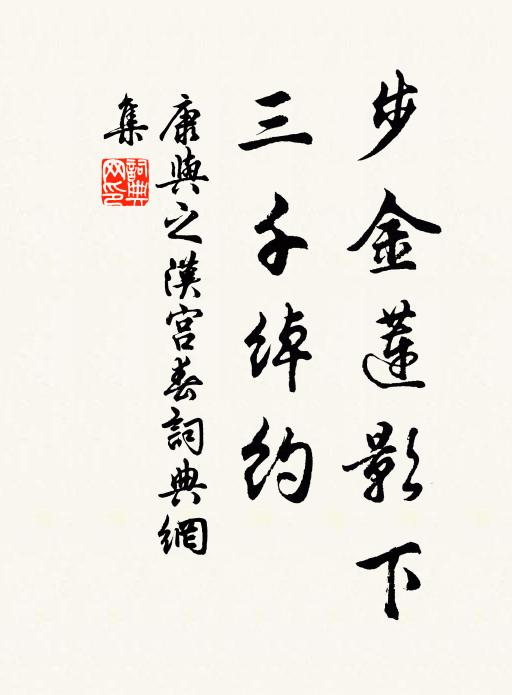 步金蓮影下
三千綽約
康與之漢宮春詞典網
集
詞典網印